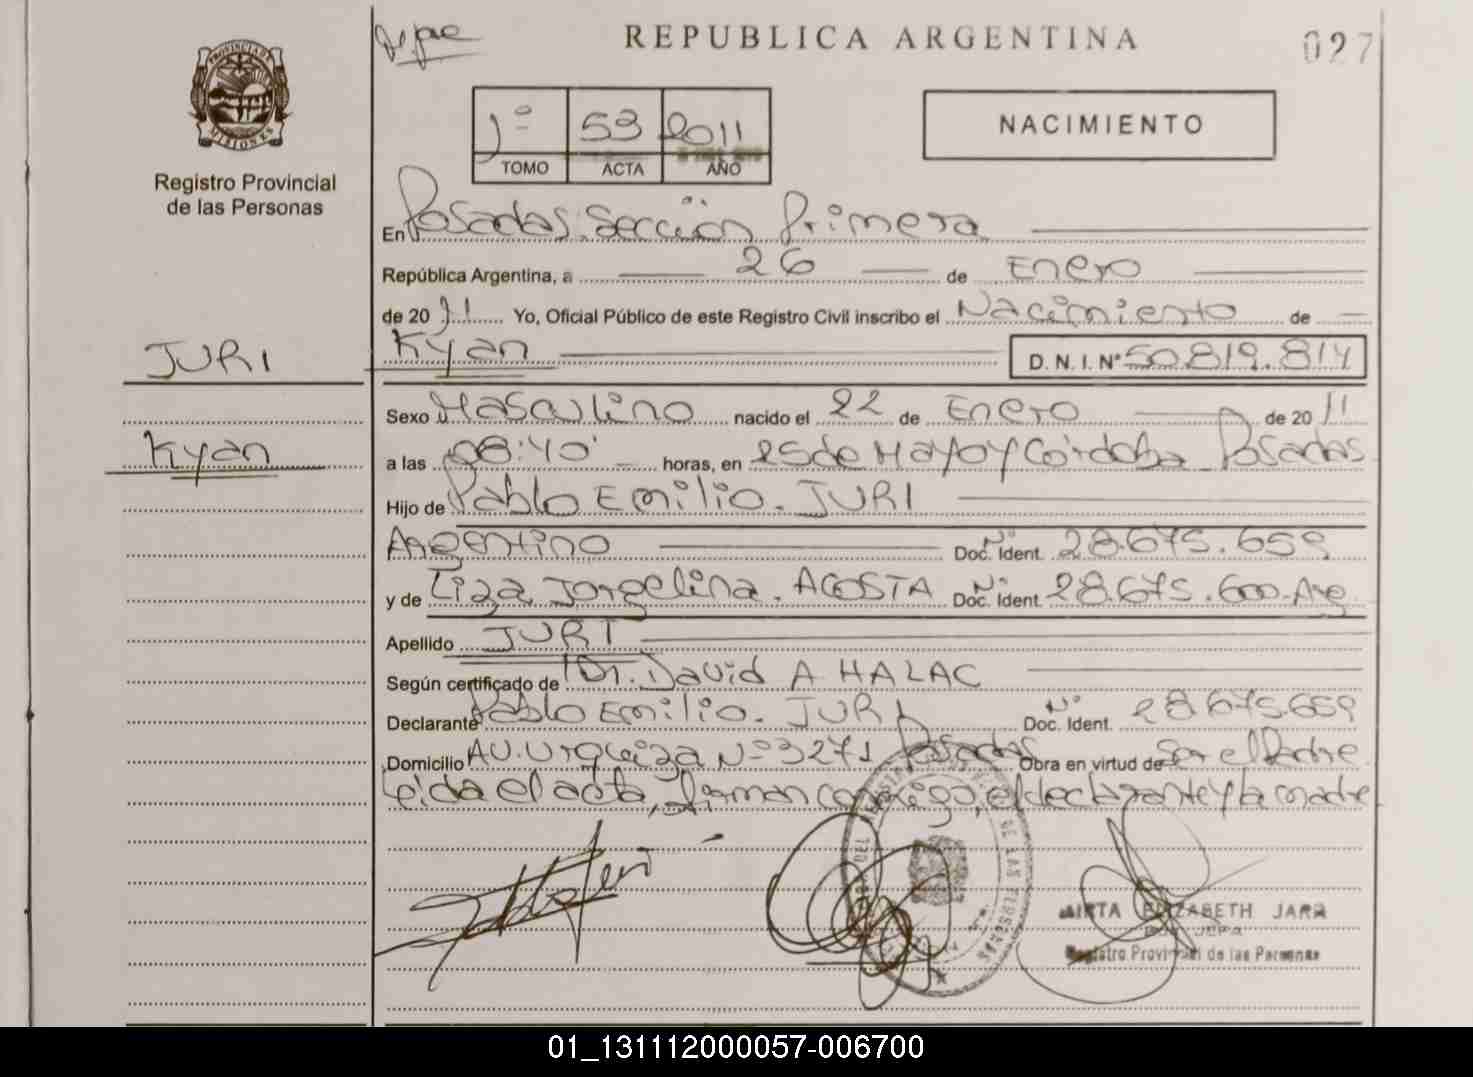 Dejar
REPUBLICA ARGENTINA
027
PROVINCIA DE
MISIONES
Registro Provincial
de las Personas
1º 53 2011
TOMO ACTA AÑO
NACIMIENTO
En Posadas, Sección Primera
República Argentina, a 26 de Enero
de 2011 Yo, Oficial Público de este Registro Civil inscribo el Nacimiento de
JURI
Kyan D. N. I. Nº 50.819.814
Sexo Masculino nacido el 22 de Enero de 2011
Kyan
a las 08:40 horas, en 25 de Mayo y Córdoba Posadas
Hijo de Pablo Emilio. JURI
Argentino Doc. Ident. Nº 28.675.659
y de Liza Jorgelina. ACOSTA Doc. Ident. Nº 28.675.600-Arg.
Apellido JURI
Según certificado de Dr. David A HALAC
Declarante Pablo Emilio. JURI Doc. Ident. Nº 28.675.659
Domicilio AV. Urquiza Nº 3271 Posadas Obra en virtud de Ser el Padre
Leída el acta, firman conmigo, el declarante y la madre
DE LAS PERSONAS
MIRTA ELIZABETH JARA
JEFA
Registro Provincial de las Personas
01_131112000057-006700